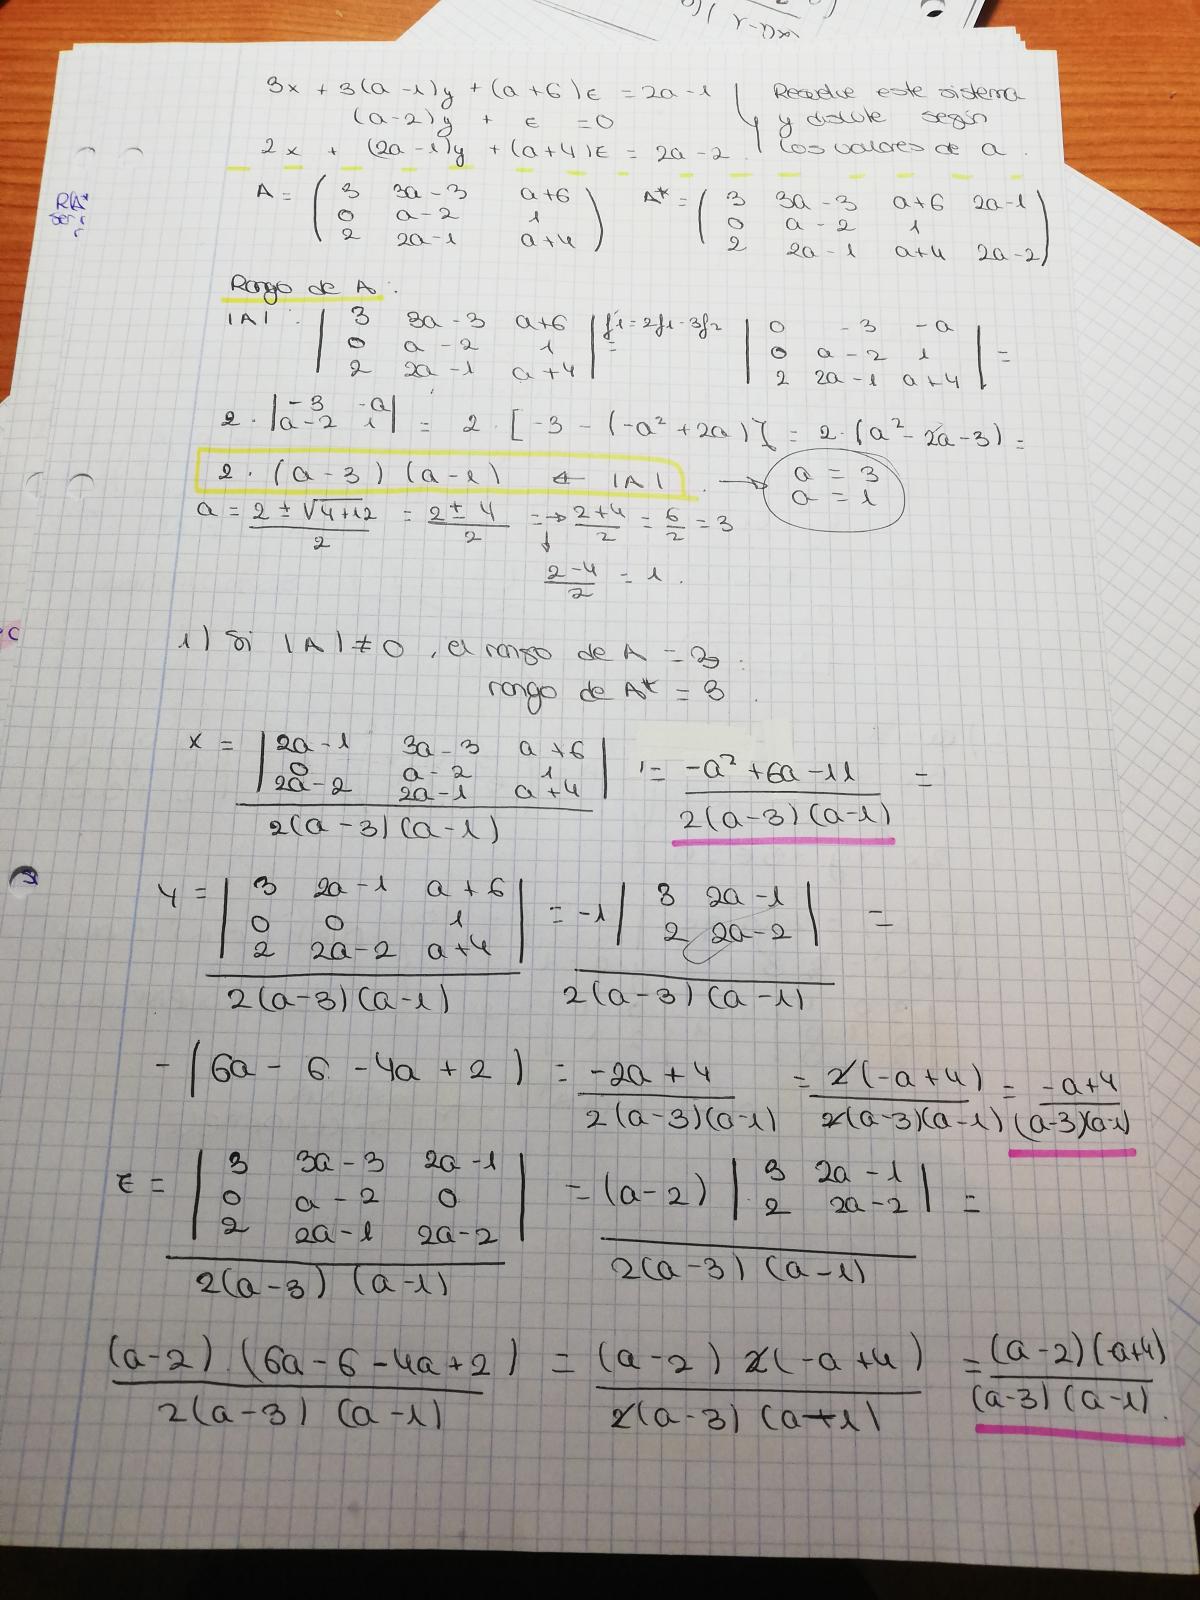 3x + 3(a-1)y + (a+6)z = 2a-1
(a-2)y + z = 0
2x + (2a-1)y + (a+4)z = 2a-2
Resuelve este sistema
y discute según
los valores de a.
A = ( 3 3a-3 a+6
0 a-2 1
2 2a-1 a+4 )
A* = ( 3 3a-3 a+6 2a-1
0 a-2 1
2 2a-1 a+4 2a-2 )
Rango de A:
|A| : | 3 3a-3 a+6
0 a-2 1
2 2a-1 a+4 | f1=2f1-3f2 =
| 0 -3 -a
0 a-2 1
2 2a-1 a+4 | =
2 · | -3 -a
a-2 1 | = 2 · [-3 - (-a²+2a)] = 2·(a²-2a-3) =
2 · (a-3) (a-1) ← |A| . → a = 3
a = 1
a = 2 ± √4+12 / 2 = 2 ± 4 / 2 = → 2+4 / 2 = 6/2 = 3
↓ 2-4 / 2 = 1.
1) Si |A| ≠ 0, el rango de A = 3.
rango de A* = 3.
x = | 2a-1 3a-3 a+6
0 a-2 1
2a-2 2a-1 a+4 | / 2(a-3)(a-1) = -a²+6a-11 / 2(a-3)(a-1) =
y = | 3 2a-1 a+6
0 0 1
2 2a-2 a+4 | / 2(a-3)(a-1) = -1 | 3 2a-1
2 2a-2 | / 2(a-3)(a-1) =
-(6a-6-4a+2) = -2a+4 / 2(a-3)(a-1) = 2(-a+4) / 2(a-3)(a-1) = -a+4 / (a-3)(a-1)
z = | 3 3a-3 2a-1
0 a-2 0
2 2a-1 2a-2 | / 2(a-3)(a-1) = (a-2) | 3 2a-1
2 2a-2 | / 2(a-3)(a-1) =
(a-2)·(6a-6-4a+2) / 2(a-3)(a-1) = (a-2) 2(-a+4) / 2(a-3)(a-1) = (a-2)(-a+4) / (a-3)(a-1).